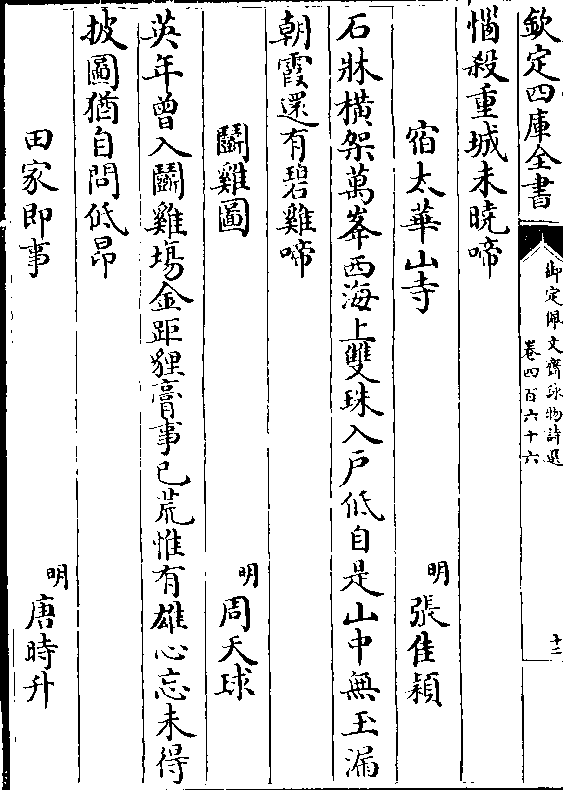 欽定四庫全書
御定佩文齋詠物詩選
卷四百六十六
十二
惱殺重城未曉啼
宿太華山寺
明
張佳穎
石牀橫架萬峯西海上雙珠入戶低自是山中無玉漏
朝霞還有碧雞啼
鬬雞圖
明
周天球
英年曾入鬬雞場金距狸膏事已荒惟有雄心忘未得
披圖猶自問低昂
田家即事
明
唐時升